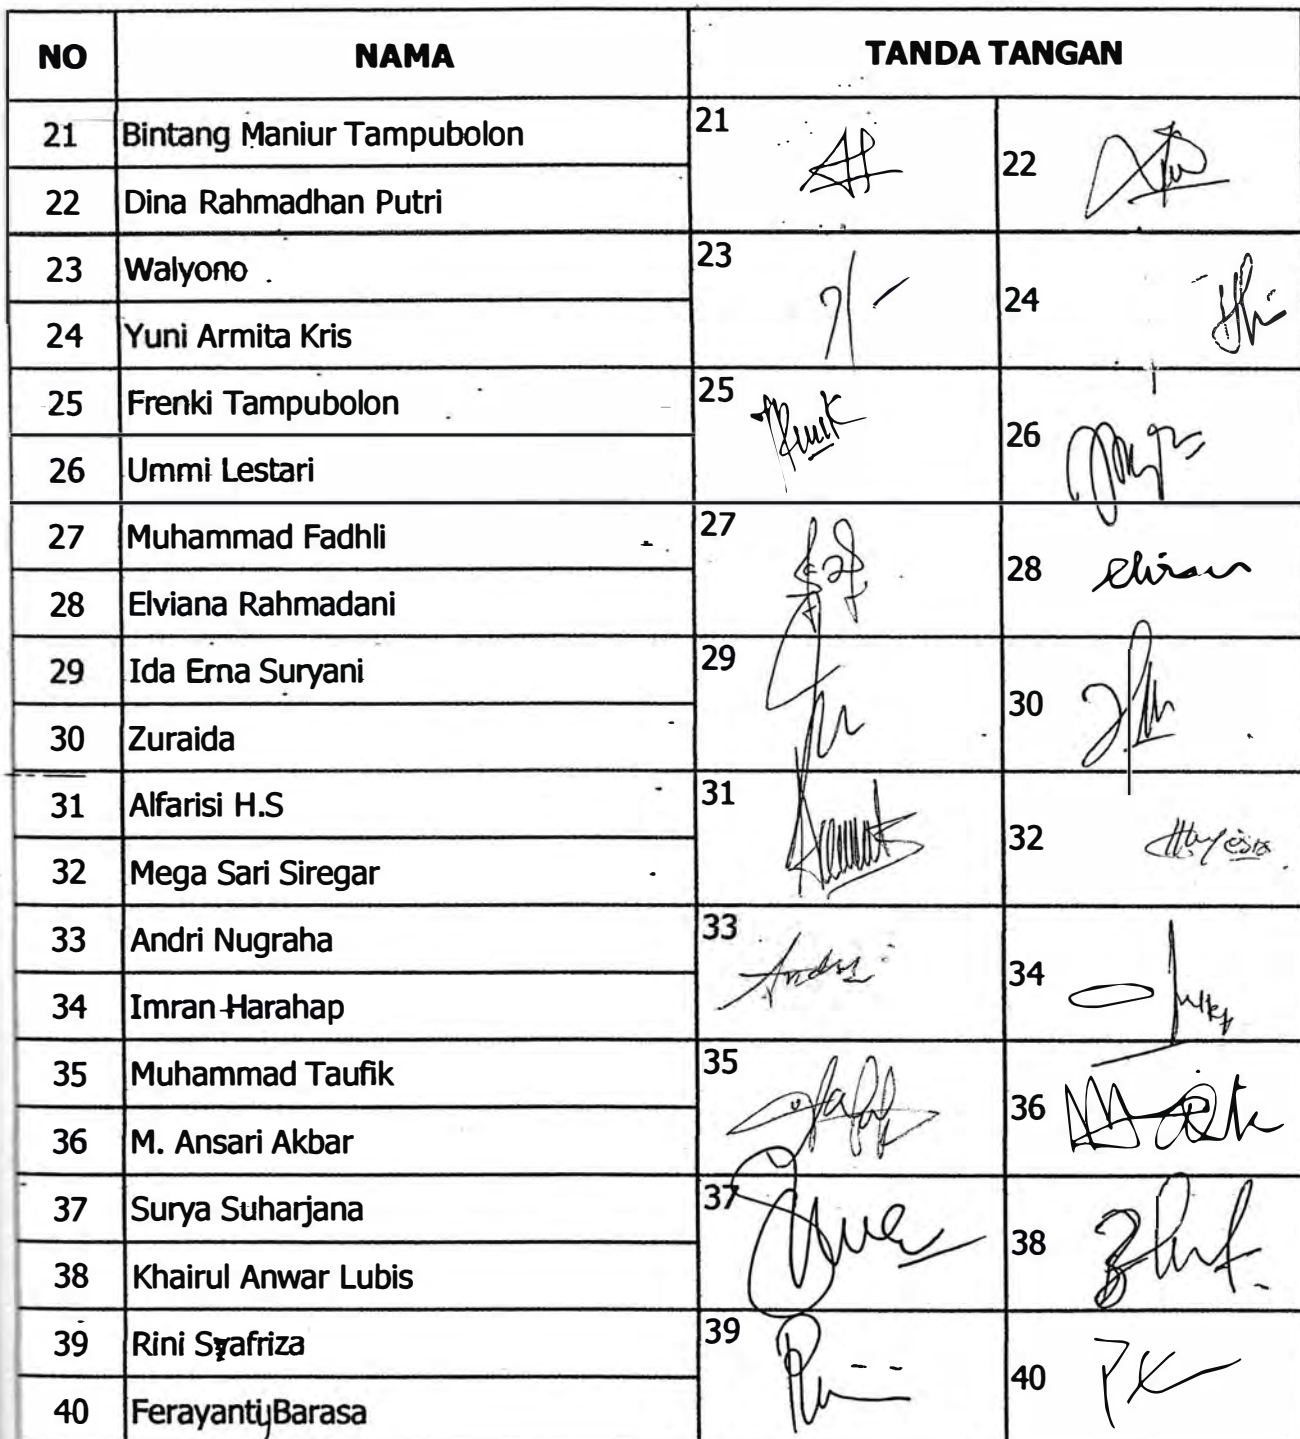 NO NAMA TANDA TANGAN
21 Bintang Maniur Tampubolon 21
22 Dina Rahmadhan Putri 22
23 Walyono 23
24 Yuni Armita Kris 24
25 Frenki Tampubolon 25
26 Ummi Lestari 26
27 Muhammad Fadhli 27
28 Elviana Rahmadani 28
29 Ida Erna Suryani 29
30 Zuraida 30
31 Alfarisi H.S 31
32 Mega Sari Siregar 32
33 Andri Nugraha 33 Andri
34 Imran Harahap 34
35 Muhammad Taufik 35
36 M. Ansari Akbar 36
37 Surya Suharjana 37
38 Khairul Anwar Lubis 38
39 Rini Syafriza 39
40 Ferayanty Barasa 40